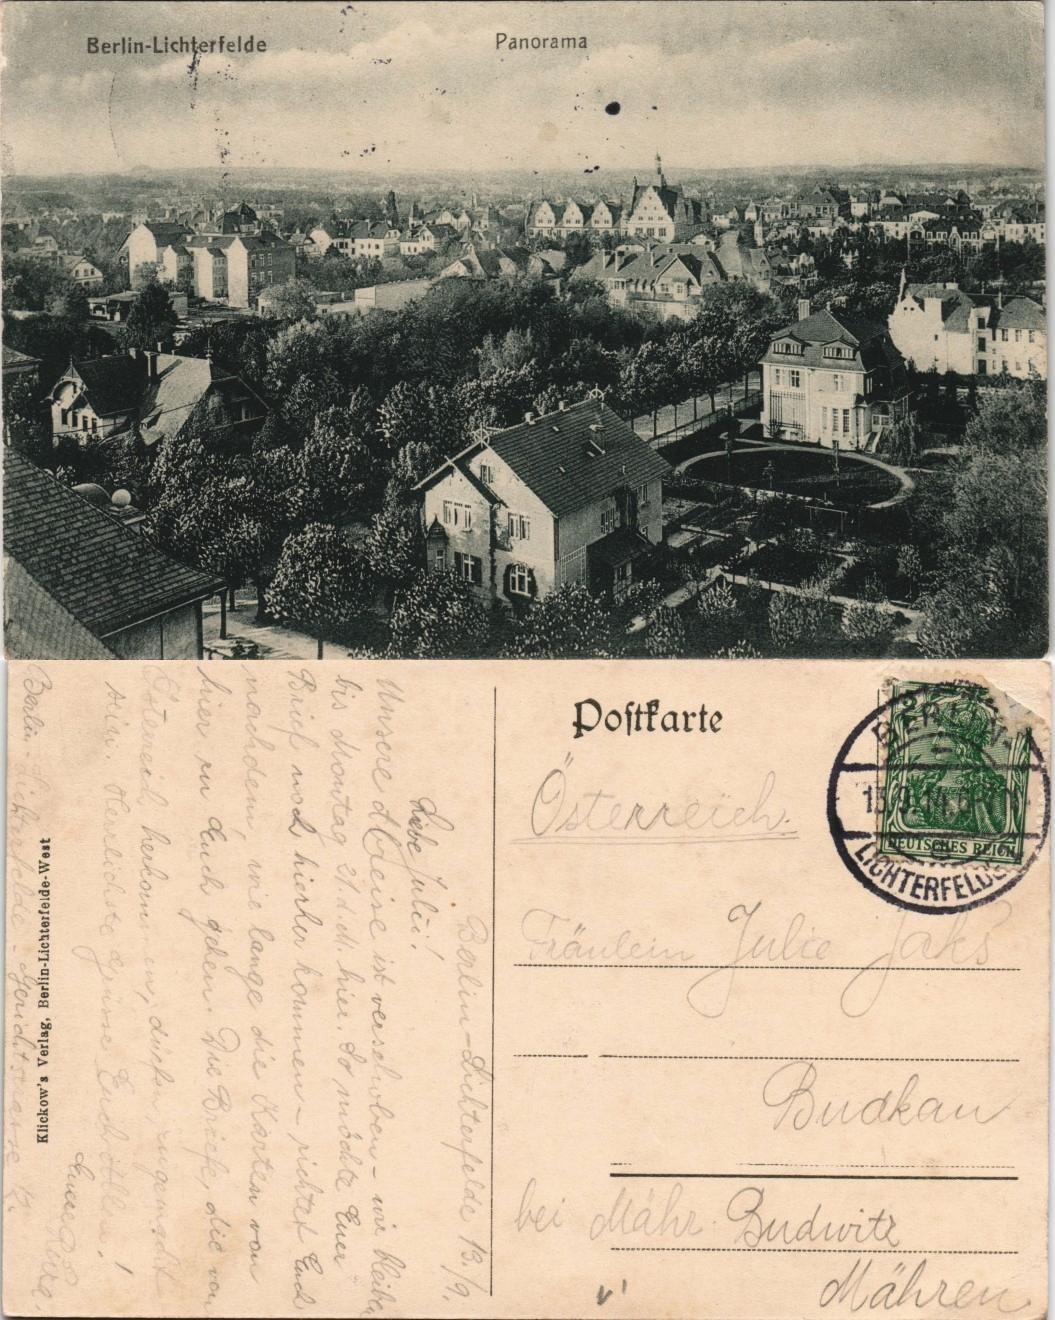 Berlin-Lichterfelde
Panorama
Postkarte
BERLIN-
13.9.14
LICHTERFELDE
DEUTSCHES REICH
Österreich.
Fräulein Julie Jaks
Budkau
bei Mähr. Budwitz
Mähren
Berlin-Lichterfelde 13./9.
Liebe Julie!
Unsere Abreise ist verschoben – wir bleiben
bis Montag 21. d. M. hier. So möchte Euer
Brief noch hierher kommen – richtet Euch
nachdem, wie lange die Karten von
hier zu Euch gehen. Die Briefe, die von
Österreich herkommen, dürfen zugemacht
sein. Herzlichste Grüße Euch Allen!
Euere
Berlin-Lichterfelde
Klickow's Verlag, Berlin-Lichterfelde-West